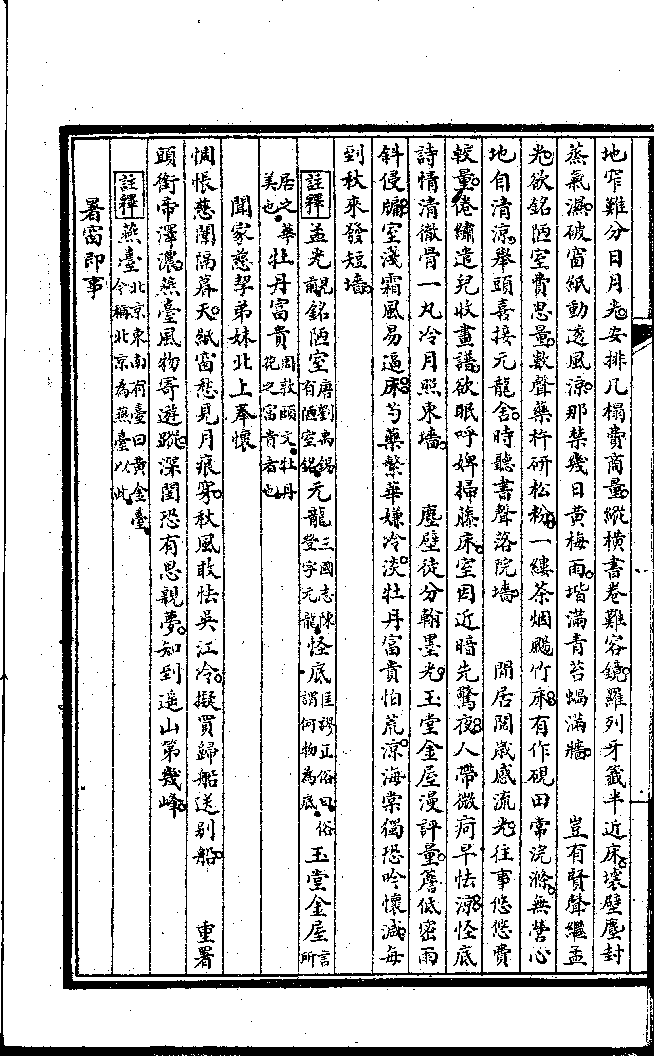 地窄難分日月光安排几榻費商量縱橫書卷難容鏡羅列牙籤半近床壞壁塵封
蒸氣濕破窗紙動透風涼那禁幾日黃梅雨堦滿青苔蝸滿牆　豈有賢聲繼孟
光欲銘陋室費思量數聲藥杵研松粉一縷茶烟颺竹床有作硯田常浣滌無營心
地自清涼舉頭喜接元龍舍時聽書聲落院墻　閒居閱歲感流光往事悠悠費
較量倦繡遣兒收畫譜欲眠呼婢掃藤床室因近暗先驚夜人帶微疴早怯涼怪底
詩情清徹骨一丸冷月照東墻　塵壁徒分翰墨光玉堂金屋漫評量簷低密雨
斜侵牖室淺霜風易逼床芍藥繁華嫌冷淡牡丹富貴怕荒涼海棠獨恐吟懷減每
到秋來發短墻
註釋孟光銘陋室唐劉禹錫有陋室銘元龍三國志陳登字元龍怪底匡謬正俗曰俗謂何物為底玉堂金屋言所
居之美也華牡丹富貴周敦頤文牡丹花之富貴者也
聞家慈挈弟妹北上奉懷
惆悵慈闈隔暮天紙窗愁見月痕穿秋風敢怯吳江冷擬買歸船送別船　重署
頭銜帝澤濃燕臺風物寄遊蹤深閨恐有思親夢知到遙山第幾峰
註釋燕臺北京東南有臺曰黃金臺今稱北京為燕臺以此
署窗即事